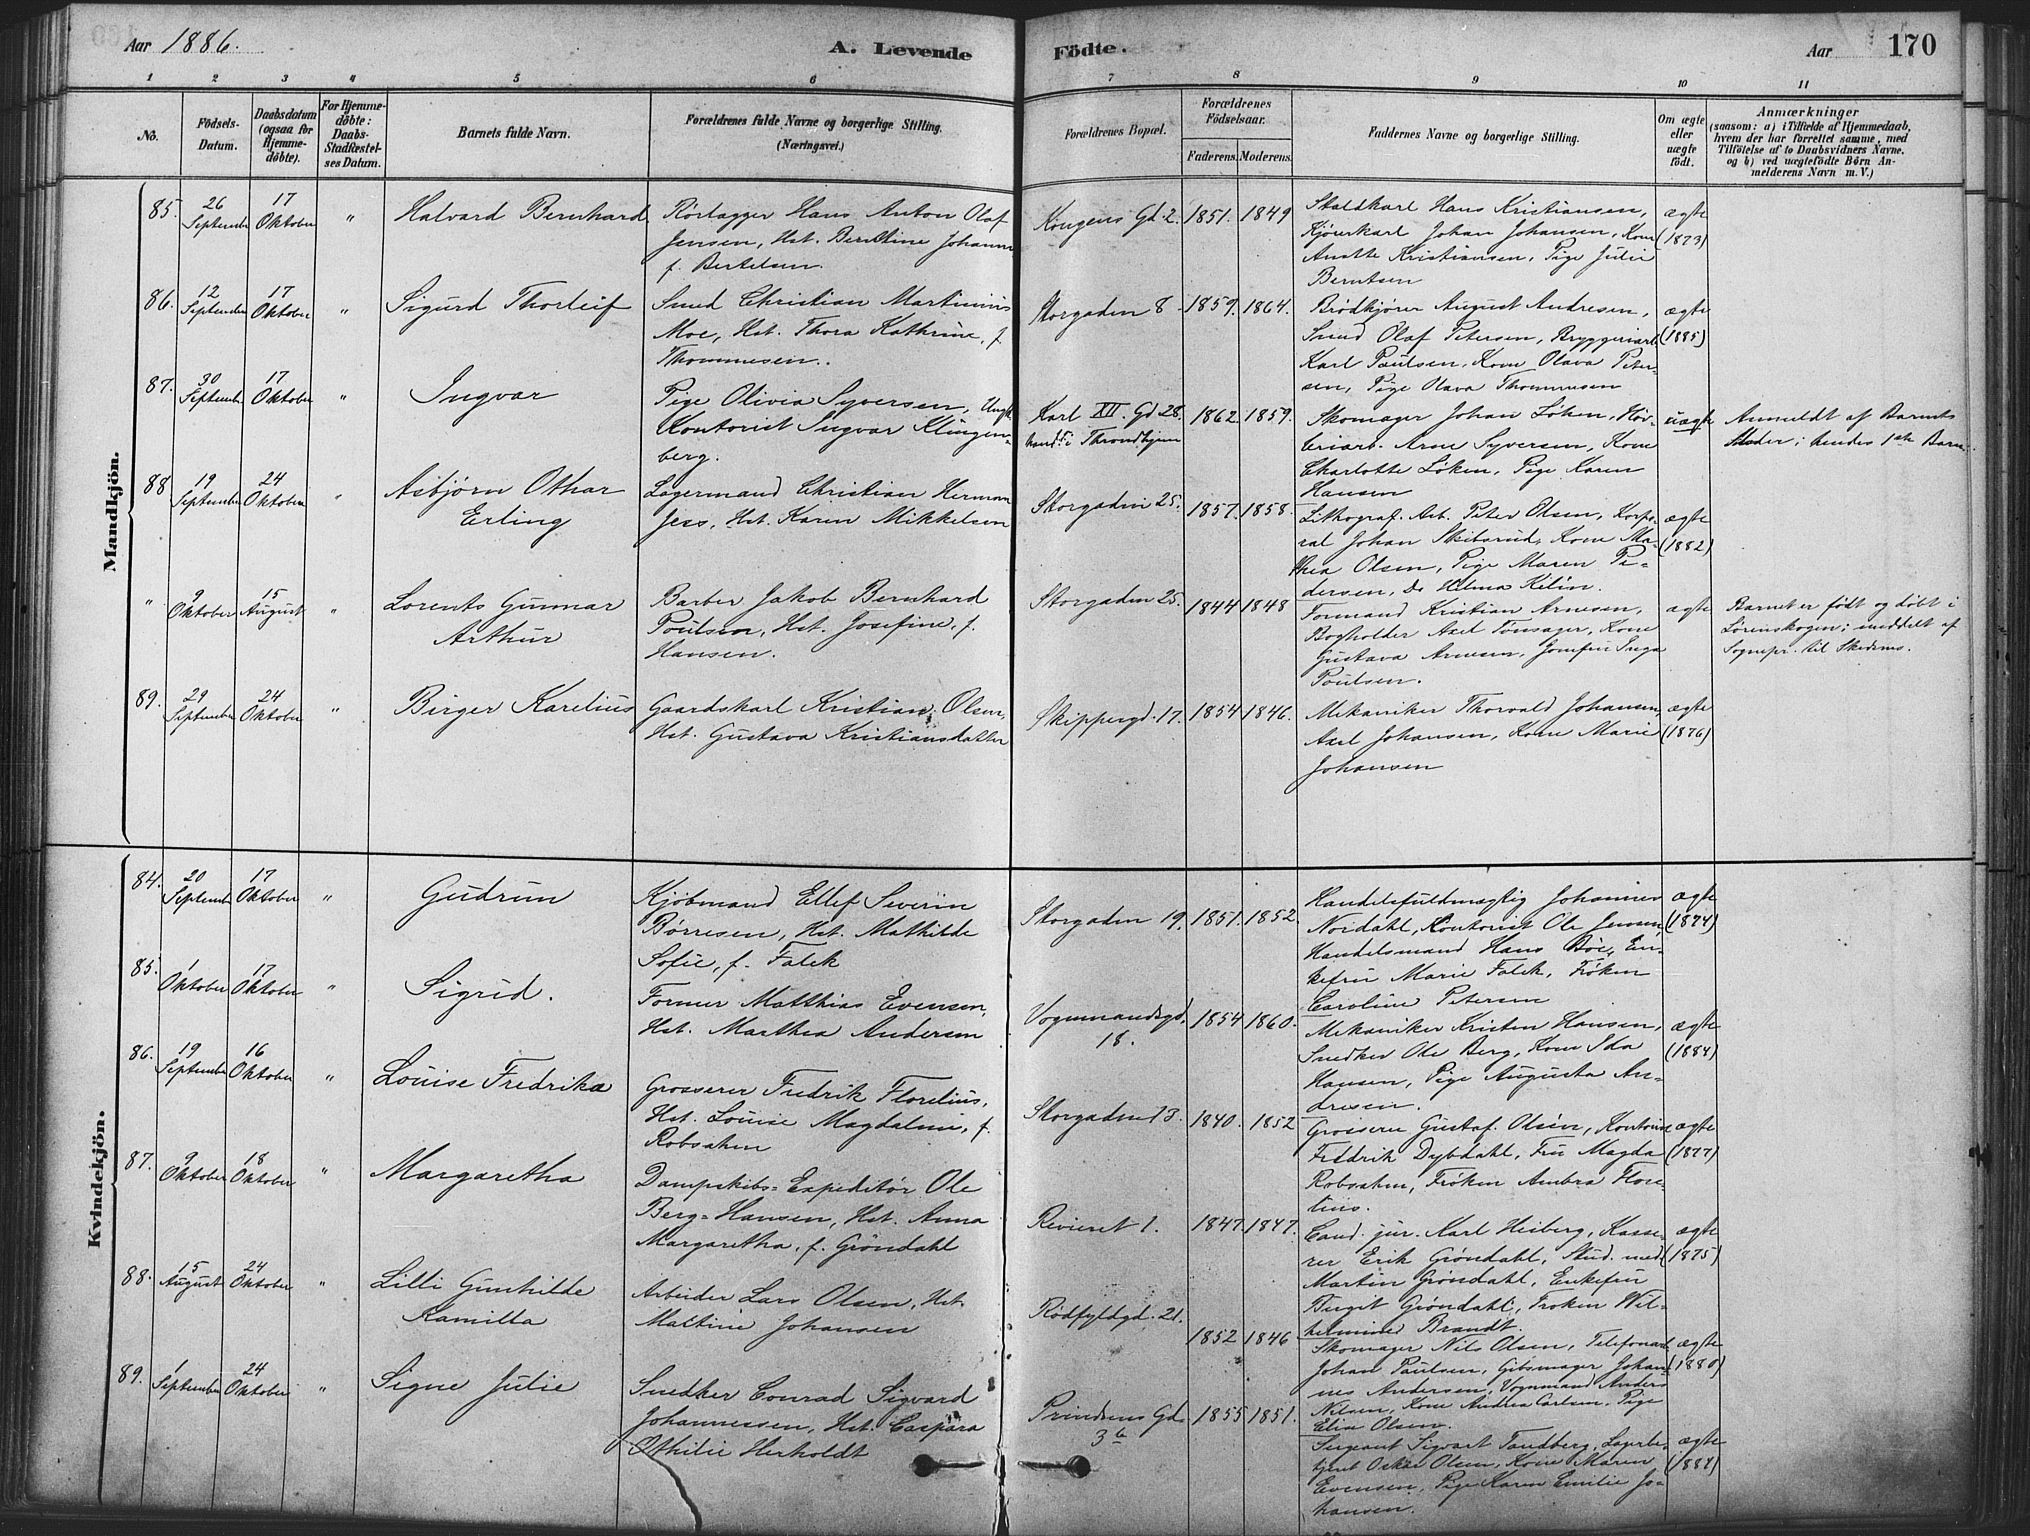 Aar 1886.
A. Levende Födte.
Aar 170
1 2 3 4 5 6 7 8 9 10 11
No.
Födsels-Datum.
Daabsdatum (ogsaa for Hjemme-döbte).
For Hjemme-döbte: Daabs-Stadfæstel-ses Datum.
Barnets fulde Navn.
Forældrenes fulde Navne og borgerlige Stilling.
(Næringsvei.)
Forældrenes Bopæl.
Forældrenes Födselsaar.
Faderens. Moderens.
Faddernes Navne og borgerlige Stilling.
Om ægte eller uægte födt.
Anmærkninger
(saasom: a) i Tilfælde af Hjemmedaab,
hvem der har forrettet samme, med
Tilföielse af to Daabsvidners Navne.
og b) ved uægtefödte Börn An-
melderens Navn m. V.)
Mandkjön.
85. 26 September 17 Oktober "
Halvard Bernhard
Rörlægger Hans Anton Olaf
Jensen, Hst. Berntine Johanne
f. Bertelsen.
Kongens Gd. 2. 1851. 1849
Staldkarl Hans Kristiansen,
Kjørerkarl Johan Johansen, Kone
Anette Kristiansen, Pige Julie
Berntsen
ægte (1873)
86. 12 September 17 Oktober "
Sigurd Thorleif
Smed Christian Martinius
Moe, Hst. Thora Kathrine, f.
Thommesen.
Storgaden 8 1859. 1864.
Brödkjører August Andresen,
Smed Olaf Petersen, Bryggeriarb.
Karl Poulsen, Kone Olava Peter-
sen, Pige Olava Thommesen
ægte (1885)
87. 30 September 17 Oktober "
Ingvar
Pige Olivia Syversen, Ungk.
Kontorist Ingvar Klingen-
berg.
Karl XII. Gd 28.
han i Throndhjem
1862. 1859.
Skomager Johan Löken,
Arne Syversen, Kone
Charlotte Löken, Pige Karen
Hansen
uægte
Anmeldt af Barnets
Moder; hendes 1ste Barn.
88 19 September 24 Oktober "
Asbjørn Othar
Erling
Lagermand Christian Herman
Jess, Hst. Karen Mikkelsen
Storgaden 25. 1857. 1858.
Lithograf. Arb. Peter Olsen, Korpo-
ral Johan Skibsrud, Kone Ma-
thea Olsen, Pige Maren Pe-
dersen, Do Helma
ægte (1882)
" 9 Oktober 15 August "
Lorents Gunnar
Arthur
Barber Jakob Bernhard
Poulsen, Hst. Josefine, f.
Hansen.
Storgaden 25. 1844 1848
Formand Kristian Arnesen,
Bogholder Axel Tønsager, Kone
Gustava Arnesen, Jomfru Inga
Poulsen.
ægte
Barnet er født og døbt i
Lørenskogen; meddelt af
Sognepr. til Skedsmo.
89. 29 September 24 Oktober "
Birger Karelius
Gaardskarl Kristian Olsen,
Hst. Gustava Kristiansdatter
Skippergd. 17. 1854 1846.
Mekaniker Thorvald Johansen,
Axel Johansen, Kone Marie
Johansen
ægte (1876)
Kvindekjön.
84. 20 September 17 Oktober "
Gudrun
Kjöbmand Ellef Severin
Børresen, Hst. Mathilde
Sofie, f. Falck
Storgaden 19. 1851. 1852.
Handelsfuldmægtig Johannes
Nordahl, Kontorist Ole Jensen,
Handelsmand Hans Bøe, En-
kefru Marie Falck, Frøken
Caroline Petersen
ægte (1874)
85. 1 Oktober 17 Oktober "
Sigrid.
Former Matthias Evensen,
Hst. Marthea Andersen
Vognmandsgd.
18.
1854 1860.
Mekaniker Kristen Hansen,
Snedker Ole Berg, Kone Ida
Hansen, Pige Augusta An-
dresen.
ægte (1884)
86. 19 September 16 Oktober "
Louise Fredrikke
Grosserer Fredrik Florelius,
Hst. Louise Magdalene, f.
Robsahm
Storgaden 13. 1840. 1852
Grosserer Gustaf Olsen, Kontorist
Fredrik Dybdahl, Fru Magda
Robsahm, Frøken Ambra Flore-
lius.
ægte (1877)
87. 9 Oktober 18 Oktober "
Margaretha
Dampskibs-Expeditør Ole
Berg-Hansen, Hst. Anna
Margaretha, f. Grøndahl
Revieret 1. 1847. 1847.
Cand. jur. Karl Heiberg, Kasse-
rer Erik Grøndahl, Stud. med.
Martin Grøndahl, Enkefru
Birgit Grøndahl, Frøken Wil-
helmine Brandt.
ægte (1875)
88. 15 August 24 Oktober "
Lilli Gunhilde
Kamilla
Arbeider Lars Olsen, Hst.
Maltine Johansen
Rødfyldgd. 21. 1852 1846
Skomager Nils Olsen, Telefonarb.
Johan Paulsen, Gibsmager Johan-
nes Andersen, Vognmand Anders
Nilsen, Kone Andrea Carlsen, Pige
Elise Olsen.
ægte (1880)
89. 1 September 24 Oktober "
Signe Julie
Snedker Conrad Sigvard
Johannessen, Hst. Caspara
Othilie Herholdt
Prindsens Gd.
3b
1855 1851.
Sergeant Sigvart Tandberg, Lagerbe-
tjent Oskar Olsen, Kone Maren
Evensen, Pige Karen Emilie Jo-
hansen.
ægte